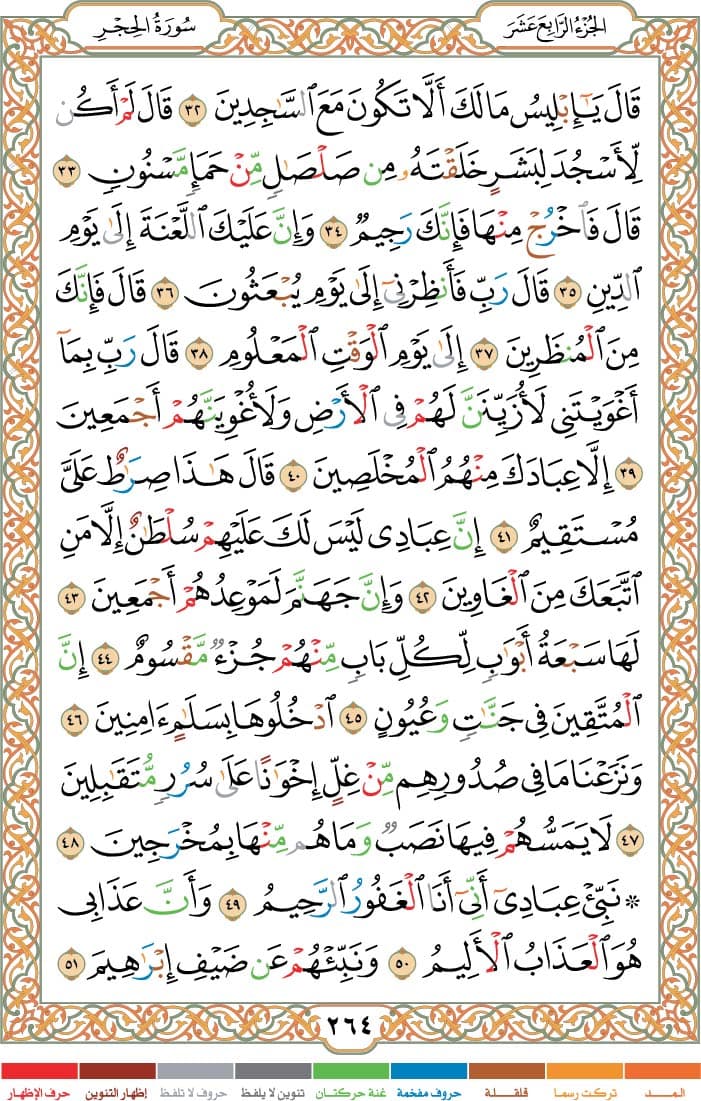 الجُزْءُ الرَّابِعَ عَشَرَ
سُورَةُ الحِجْرِ
قَالَ يَٰٓإِبْلِيسُ مَا لَكَ أَلَّا تَكُونَ مَعَ ٱلسَّٰجِدِينَ ٣٢ قَالَ لَمْ أَكُن
لِّأَسْجُدَ لِبَشَرٍ خَلَقْتَهُۥ مِن صَلْصَٰلٍ مِّنْ حَمَإٍ مَّسْنُونٍ ٣٣
قَالَ فَٱخْرُجْ مِنْهَا فَإِنَّكَ رَجِيمٌ ٣٤ وَإِنَّ عَلَيْكَ ٱللَّعْنَةَ إِلَىٰ يَوْمِ
ٱلدِّينِ ٣٥ قَالَ رَبِّ فَأَنظِرْنِىٓ إِلَىٰ يَوْمِ يُبْعَثُونَ ٣٦ قَالَ فَإِنَّكَ
مِنَ ٱلْمُنظَرِينَ ٣٧ إِلَىٰ يَوْمِ ٱلْوَقْتِ ٱلْمَعْلُومِ ٣٨ قَالَ رَبِّ بِمَآ
أَغْوَيْتَنِى لَأُزَيِّنَنَّ لَهُمْ فِى ٱلْأَرْضِ وَلَأُغْوِيَنَّهُمْ أَجْمَعِينَ
٣٩ إِلَّا عِبَادَكَ مِنْهُمُ ٱلْمُخْلَصِينَ ٤٠ قَالَ هَٰذَا صِرَٰطٌ عَلَىَّ
مُسْتَقِيمٌ ٤١ إِنَّ عِبَادِى لَيْسَ لَكَ عَلَيْهِمْ سُلْطَٰنٌ إِلَّا مَنِ
ٱتَّبَعَكَ مِنَ ٱلْغَاوِينَ ٤٢ وَإِنَّ جَهَنَّمَ لَمَوْعِدُهُمْ أَجْمَعِينَ ٤٣
لَهَا سَبْعَةُ أَبْوَٰبٍ لِّكُلِّ بَابٍ مِّنْهُمْ جُزْءٌ مَّقْسُومٌ ٤٤ إِنَّ
ٱلْمُتَّقِينَ فِى جَنَّٰتٍ وَعُيُونٍ ٤٥ ٱدْخُلُوهَا بِسَلَٰمٍ ءَامِنِينَ ٤٦
وَنَزَعْنَا مَا فِى صُدُورِهِم مِّنْ غِلٍّ إِخْوَٰنًا عَلَىٰ سُرُرٍ مُّتَقَٰبِلِينَ
٤٧ لَا يَمَسُّهُمْ فِيهَا نَصَبٌ وَمَا هُم مِّنْهَا بِمُخْرَجِينَ ٤٨
۞ نَبِّئْ عِبَادِىٓ أَنِّىٓ أَنَا ٱلْغَفُورُ ٱلرَّحِيمُ ٤٩ وَأَنَّ عَذَابِى
هُوَ ٱلْعَذَابُ ٱلْأَلِيمُ ٥٠ وَنَبِّئْهُمْ عَن ضَيْفِ إِبْرَٰهِيمَ ٥١
٢٦٤
المــد تركت رسما قلقلة حروف مفخمة غنة حركتان تنوين لا يلفظ حروف لا تلفظ إظهار التنوين حرف الإظهار